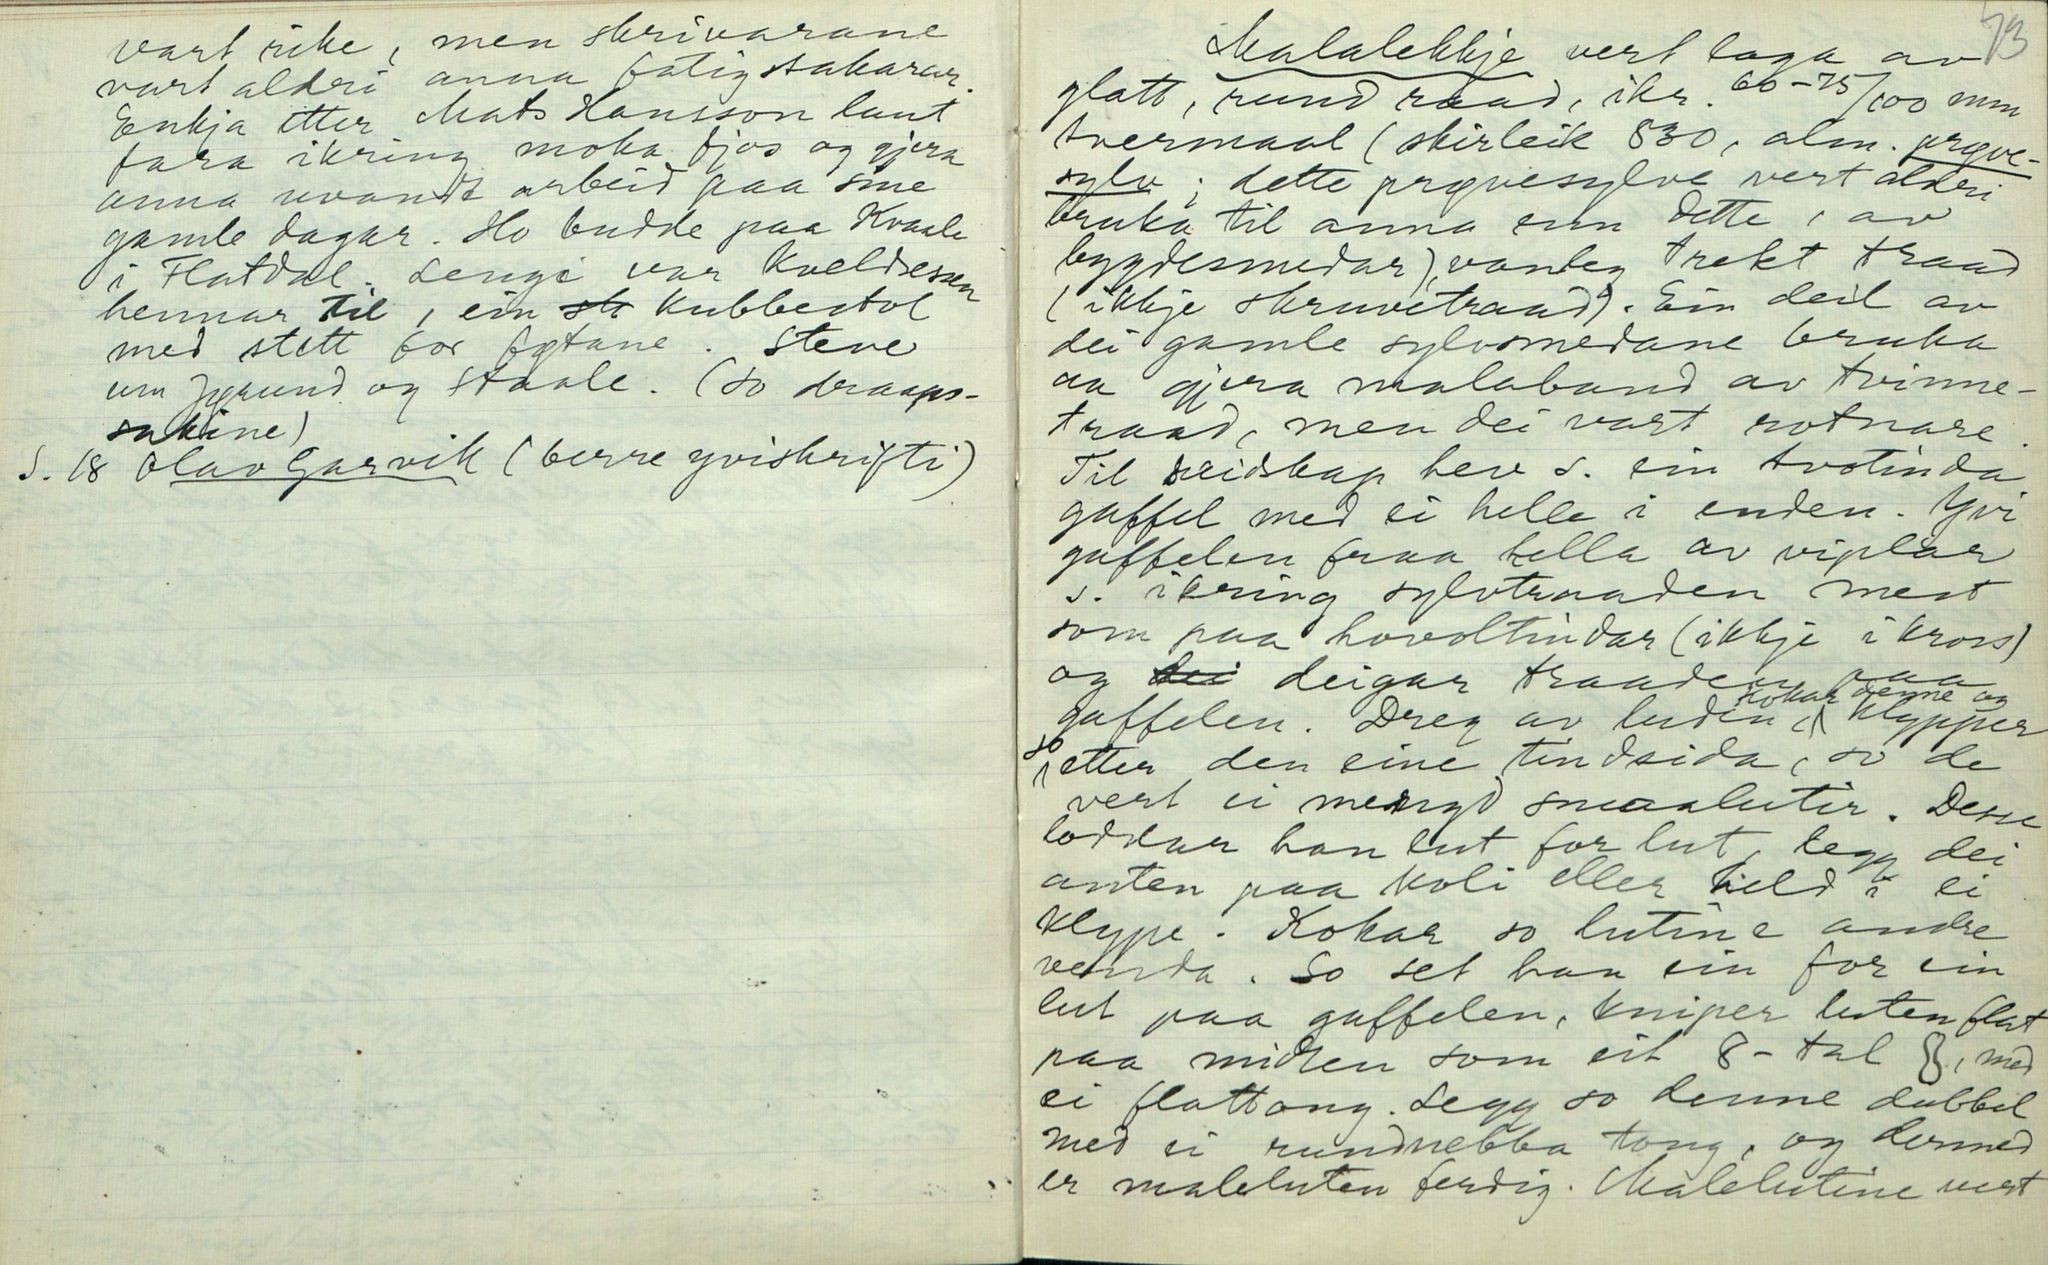 vart rike, men skrivarane
vart aldri anna fatigstakarar.
Enkja etter Mats Hansson laut
fara ikring moka fjos og gjera
anna uvandt arbeid paa sine
gamle dagar. Ho budde paa Kvaale
i Flatdal. Lengi var kveldsessen
hennar til, ein st kubbestol
med stett for føtane. Steve
um Jørund og Staale. (so draaps-
sakine)
S. 18 Olav Garvik (berre yviskrifti)
73
Malalekkje vert laga av
glatt, rund traad, ikr. 60-75/100 mm
tvermaal (skirleik 830, alm. prøve-
sylv; dette prøvesylve vert aldri
bruka til anna enn dette, av
bygdesmedar), vanleg trekt traad
(ikkje skruvetraad). Ein deil av
dei gamle sylvsmedane bruka
aa gjera malaband av tvinne-
traad, men dei vart rotnare.
Til reidskap hev S. ein tvotinda
gaffel med ei helle i enden. Yvi
gaffelen fraa hella av viplar
S. ikring sylvtraaden mest
som paa hovoltindar (ikkje i kross)
og dei deigar traaden paa
gaffelen. Dreg av luden, kokar denne og klypper
so etter den eine tindsida, so de
vert ei mengd smaalutir. Desse
loddar han lut for lut, legg dei
anten paa koli eller held i ei
klype. Kokar so lutine andre
venda. So set han ein for ein
lut paa gaffelen, kniper luten flat
paa midten som eit 8-tal 8, med
ei flattong. Legg so denne dubbel
med ei rundnebba tong, og dermed
er maleluten ferdig. Malelutine vert